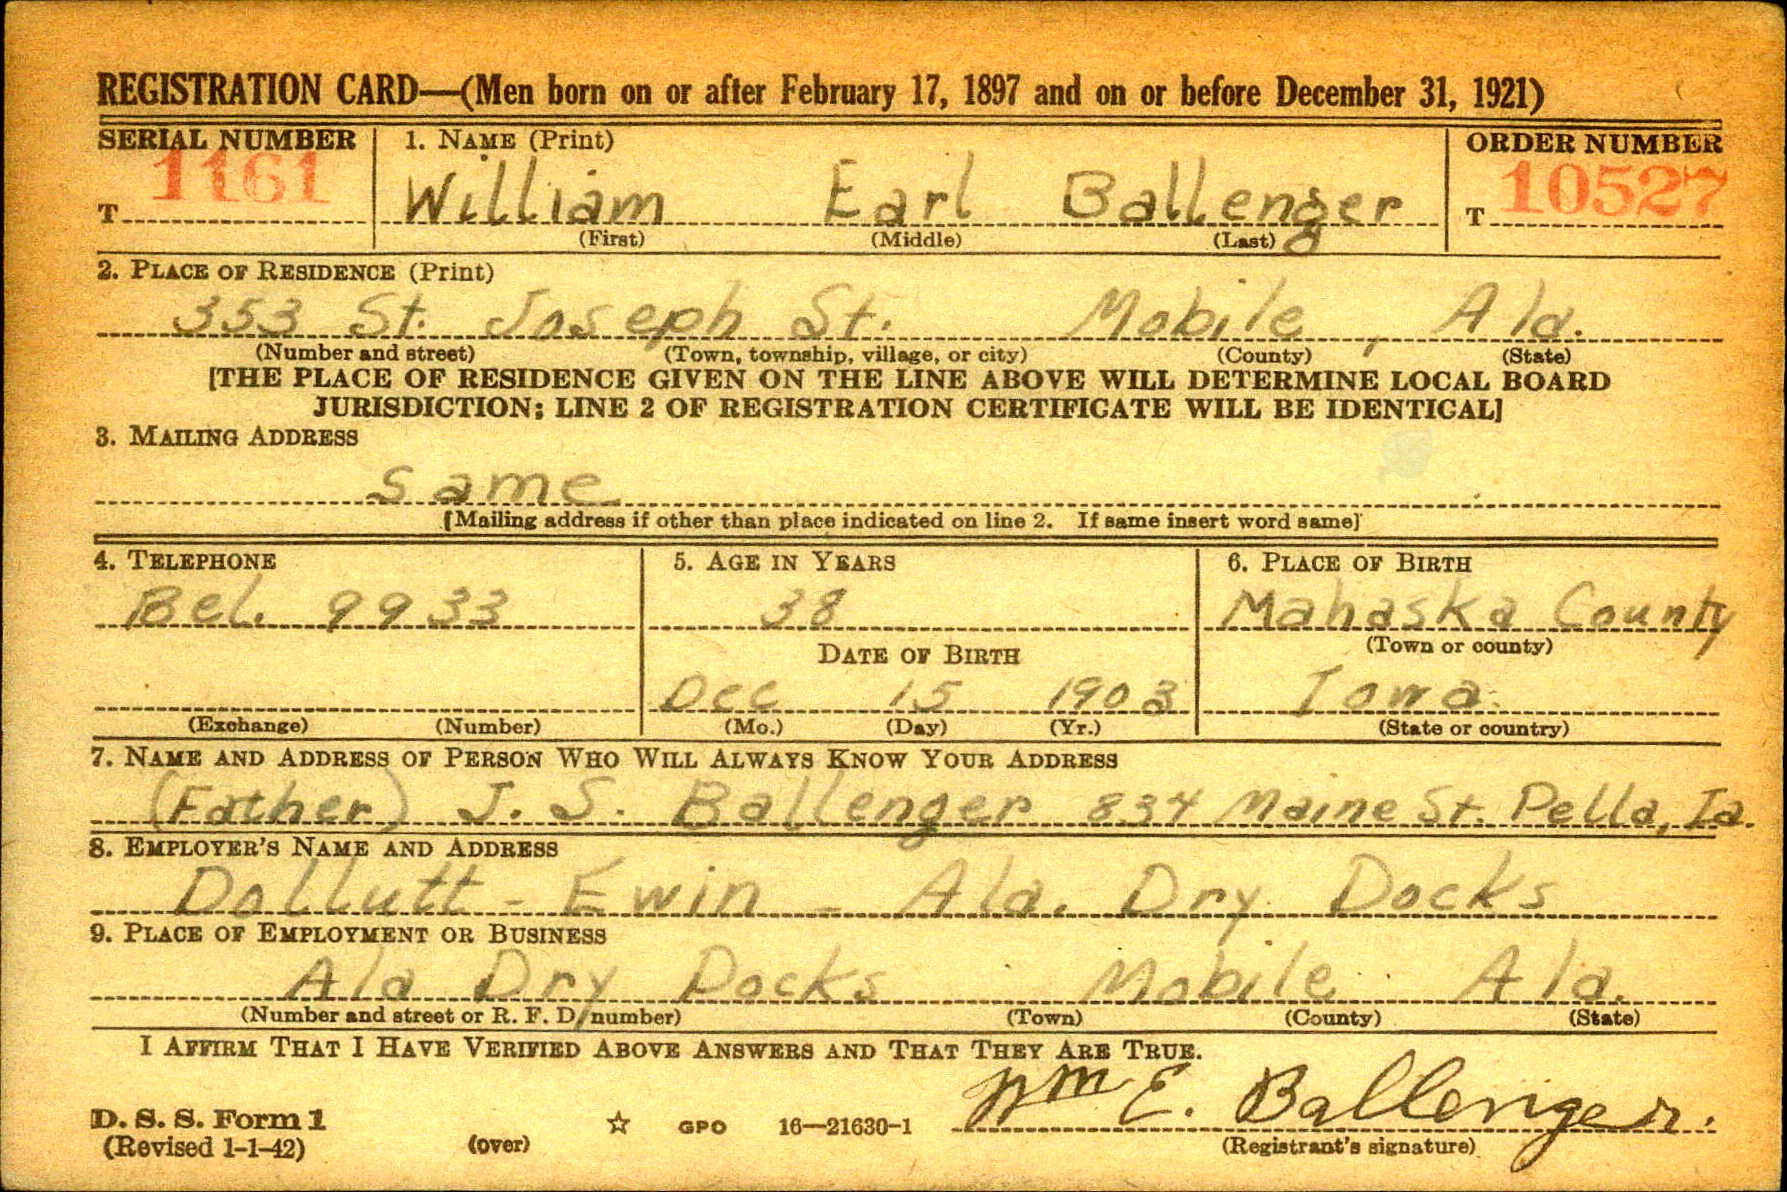 REGISTRATION CARD—(Men born on or after February 17, 1897 and on or before December 31, 1921)
SERIAL NUMBER 1. NAME (Print) ORDER NUMBER
T 1161 William Earl Ballenger T 10527
(First) (Middle) (Last)
2. PLACE OF RESIDENCE (Print)
353 St. Joseph St. Mobile, Ala.
(Number and street) (Town, township, village, or city) (County) (State)
[THE PLACE OF RESIDENCE GIVEN ON THE LINE ABOVE WILL DETERMINE LOCAL BOARD
JURISDICTION; LINE 2 OF REGISTRATION CERTIFICATE WILL BE IDENTICAL]
3. MAILING ADDRESS
same
[Mailing address if other than place indicated on line 2. If same insert word same]
4. TELEPHONE 5. AGE IN YEARS 6. PLACE OF BIRTH
Bel. 9933 38 Mahaska County
(Town or county)
DATE OF BIRTH
Dec 15 1903 Iowa
(Exchange) (Number) (Mo.) (Day) (Yr.) (State or country)
7. NAME AND ADDRESS OF PERSON WHO WILL ALWAYS KNOW YOUR ADDRESS
(Father) J. S. Ballenger 834 Maine St. Pella, Ia.
8. EMPLOYER'S NAME AND ADDRESS
Dollutt - Ewin - Ala. Dry Docks
9. PLACE OF EMPLOYMENT OR BUSINESS
Ala Dry Docks Mobile Ala.
(Number and street or R. F. D. number) (Town) (County) (State)
I AFFIRM THAT I HAVE VERIFIED ABOVE ANSWERS AND THAT THEY ARE TRUE.
Wm E. Ballenger.
D. S. S. Form 1
(Revised 1-1-42) (over) ☆ GPO 16—21630-1 (Registrant's signature)